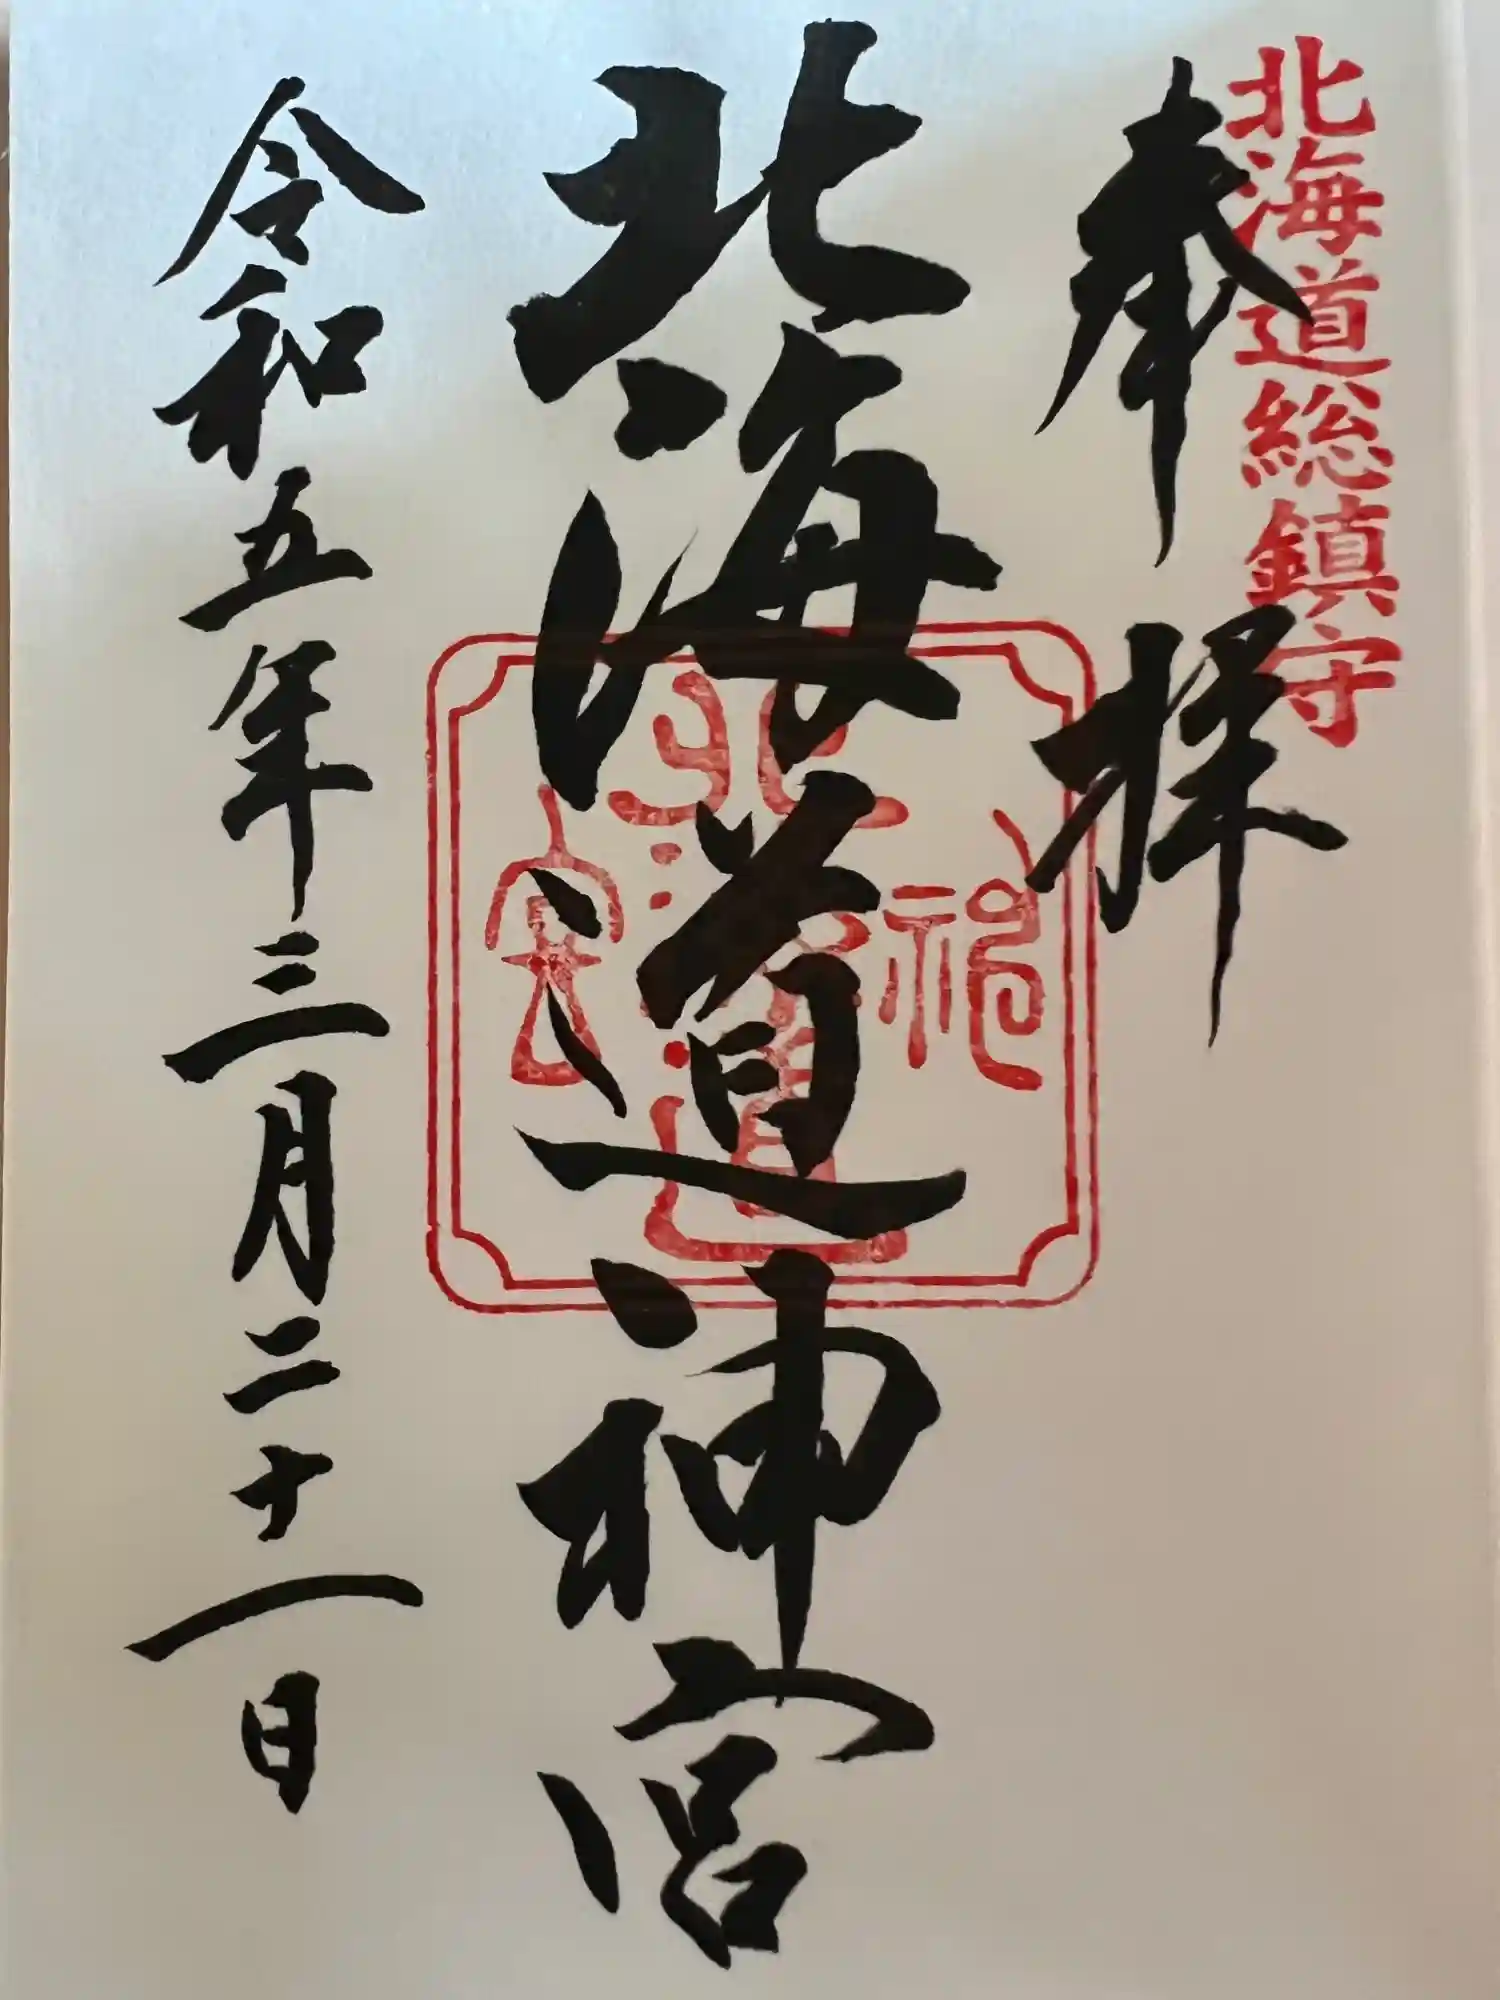 北海道総鎮守
奉拝
北海道神宮
令和五年三月二十一日